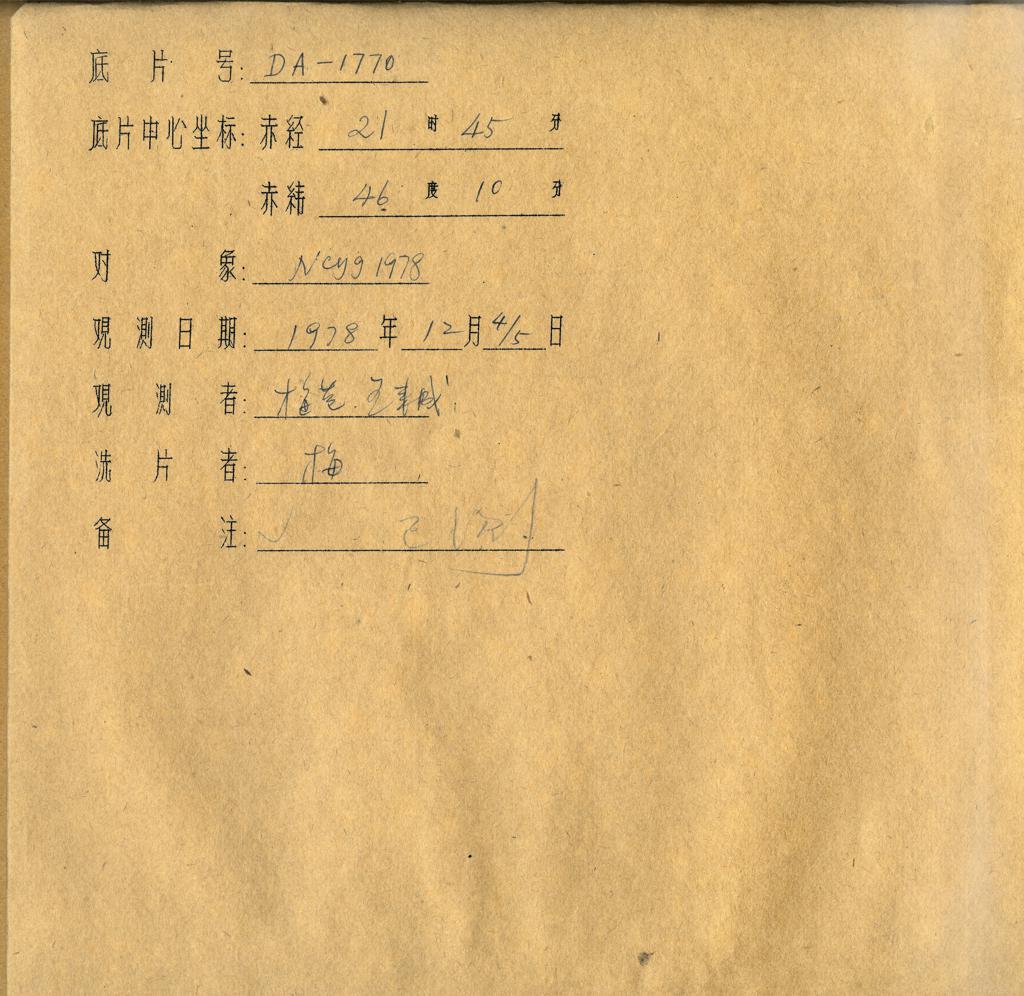 底片号: DA-1770
底片中心坐标: 赤经 21 时 45 分
赤纬 46 度 10 分
对象: NCyg 1978
观测日期: 1978 年 12 月 4/5 日
观测者: 梅苞
洗片者: 梅
备注: ✓ 已